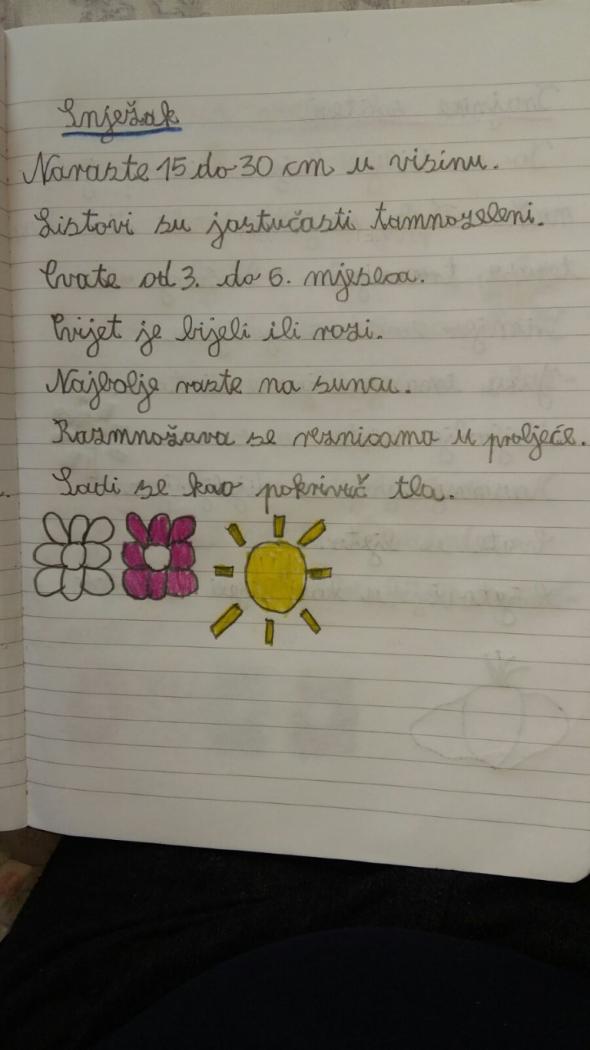 Snježak
Naraste 15 do 30 cm u visinu.
Listovi su jastučasti tamnozeleni.
Cvate od 3. do 6. mjeseca.
Cvijet je bijeli ili rozi.
Najbolje raste na suncu.
Razmnožava se reznicama u proljeće.
Sadi se kao pokrivač tla.